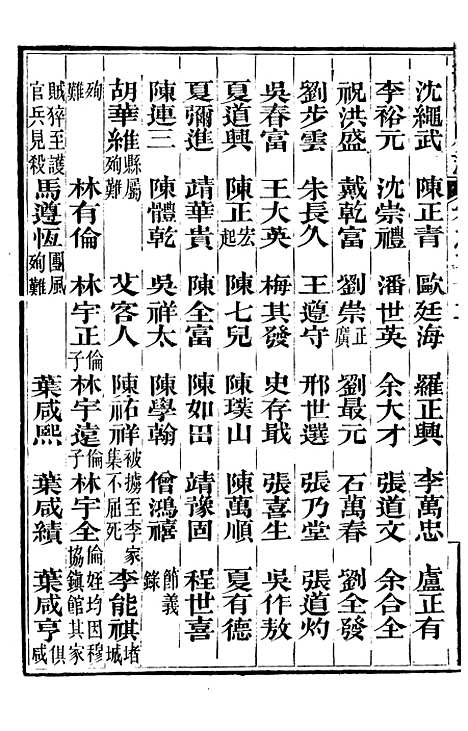 沈繩武　陳正青　歐廷海　羅正興　李萬忠　盧正有
李裕元　沈崇禮　潘世英　余大才　張道文　余合全
祝洪盛　戴乾富　劉崇正廣　劉最元　石萬春　劉全發
劉步雲　朱長久　王遵守　邢世選　張乃堂　張道灼
吳春富　王大英　梅其發　史存戢　張喜生　吳作敖
夏道興　陳正宏起　陳七兒　陳璞山　陳萬順　夏有德
夏彌進　靖華貴　陳全富　陳如田　靖豫固　程世喜
陳連三　陳體乾　吳祥太　陳學翰　僧鴻禧　節義錄
胡華維縣屬殉難　艾客人　陳祐祥被擄至李家集不屈死　李能祺堵城
殉難　林有倫　林宇正倫子　林宇遠倫子　林宇全倫姪均因穆協鎮館其家
賊猝至護官兵見殺　馬遵恆團風殉難　葉咸熙　葉咸績　葉咸亨俱咸